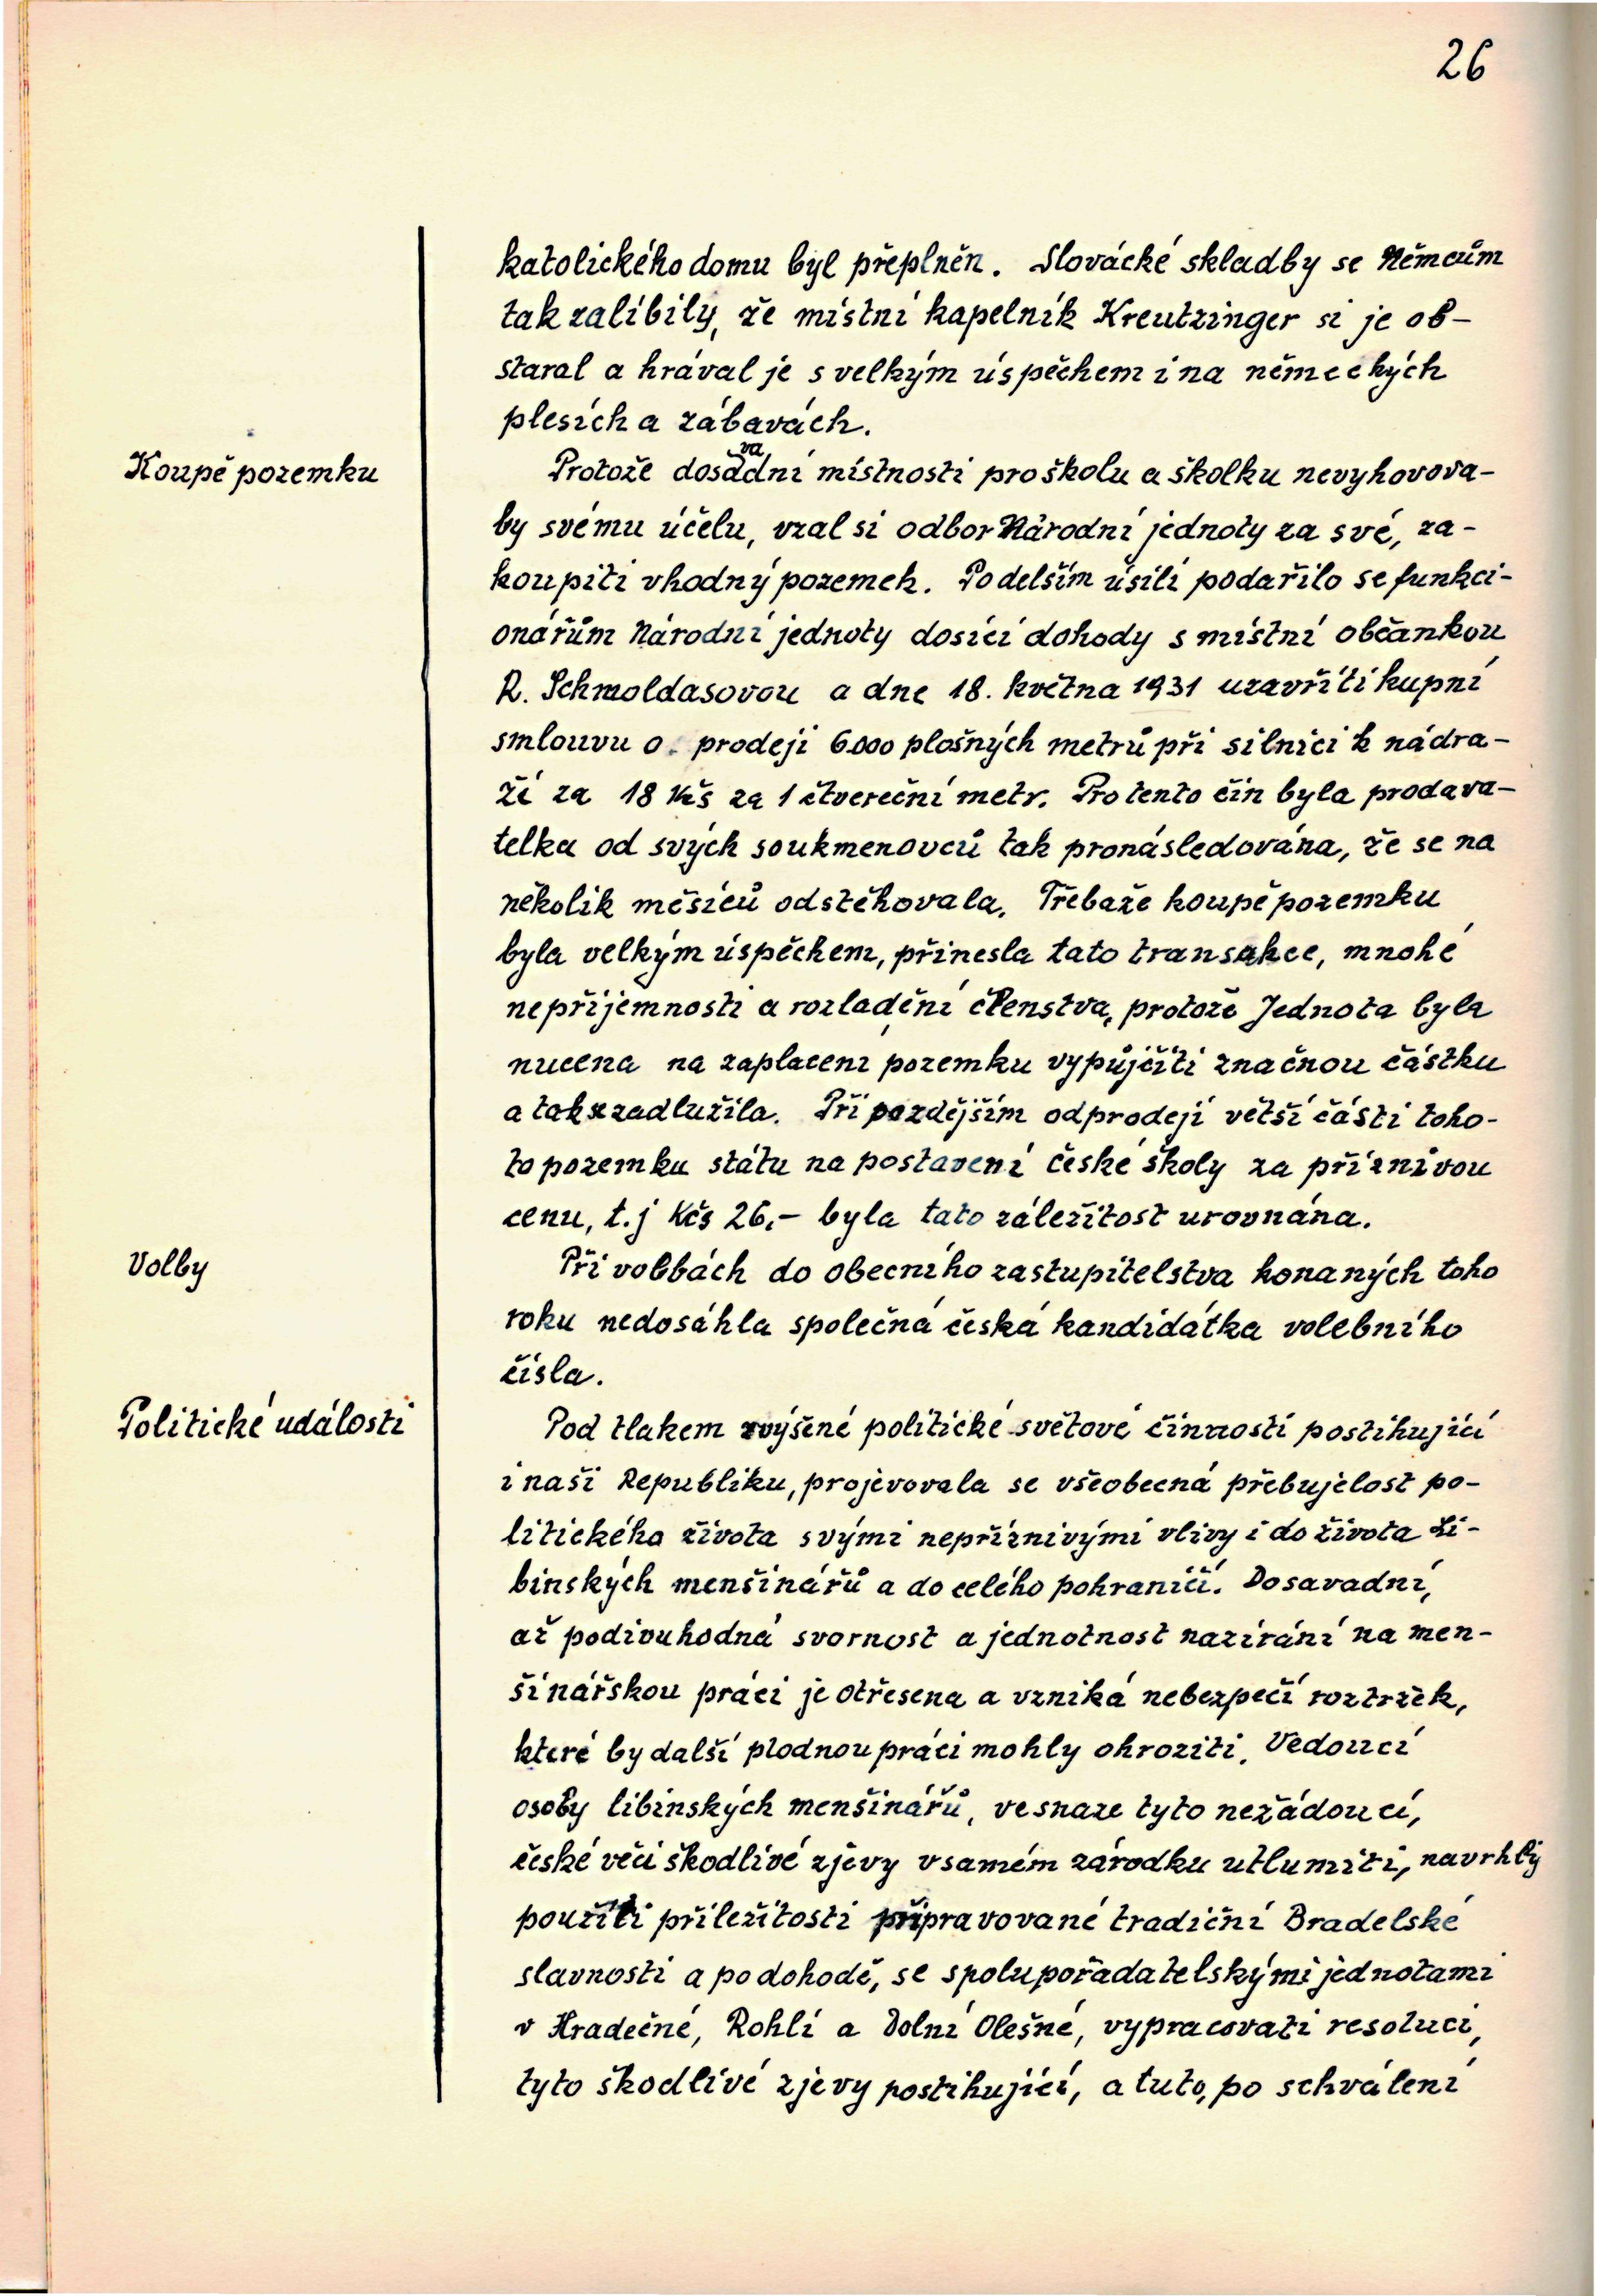 26
katolického domu byl přeplněn. Slovácké skladby se Němcům
tak zalíbily, že místní kapelník Kreutzinger si je ob-
staral a hrával je s velkým úspěchem i na německých
plesích a zábavách.
Koupě pozemku
Protože dosavadní místnosti pro školu a školku nevyhovova-
by svému účelu, vzal si odbor Národní jednoty za své, za-
koupiti vhodný pozemek. Po delším úsilí podařilo se funkci-
onářům Národní jednoty dosíci dohody s místní občankou
R. Schmoldasovou a dne 18. května 1931 uzavříti kupní
smlouvu o prodeji 6.000 plošných metrů při silnici k nádra-
ží za 18 Kčs za 1 čtvereční metr. Pro tento čin byla prodava-
telka od svých soukmenovců tak pronásledována, že se na
několik měsíců odstěhovala. Třebaže koupě pozemku
byla velkým úspěchem, přinesla tato transakce, mnohé
nepříjemnosti a rozladění členstva, protože Jednota byla
nucena na zaplacení pozemku vypůjčiti značnou částku
a tak se zadlužila. Při pozdějším odprodeji větší části toho-
to pozemku státu na postavení české školy za příznivou
cenu, t.j Kčs 26.- byla tato záležitost urovnána.
Volby
Při volbách do obecního zastupitelstva konaných toho
roku nedosáhla společná česká kandidátka volebního
čísla.
Politické události
Pod tlakem zvýšené politické světové činnosti postihující
i naši Republiku, projevovala se všeobecná přebujelost po-
litického života svými nepříznivými vlivy i do života Li-
binských menšinářů a do celého pohraničí. Dosavadní,
až podivuhodná svornost a jednotnost nazírání na men-
šinářskou práci je otřesena a vzniká nebezpečí roztržek,
které by další plodnou práci mohly ohroziti. Vedoucí
osoby libinských menšinářů, ve snaze tyto nežádoucí,
české věci škodlivé zjevy v samém zárodku utlumiti, navrhly
použíti příležitosti připravované tradiční Bradelské
slavnosti a po dohodě, se spolupořadatelskými jednotami
v Hradečné, Rohli a Dolní Olešné, vypracovati resoluci,
tyto škodlivé zjevy postihující, a tuto, po schválení